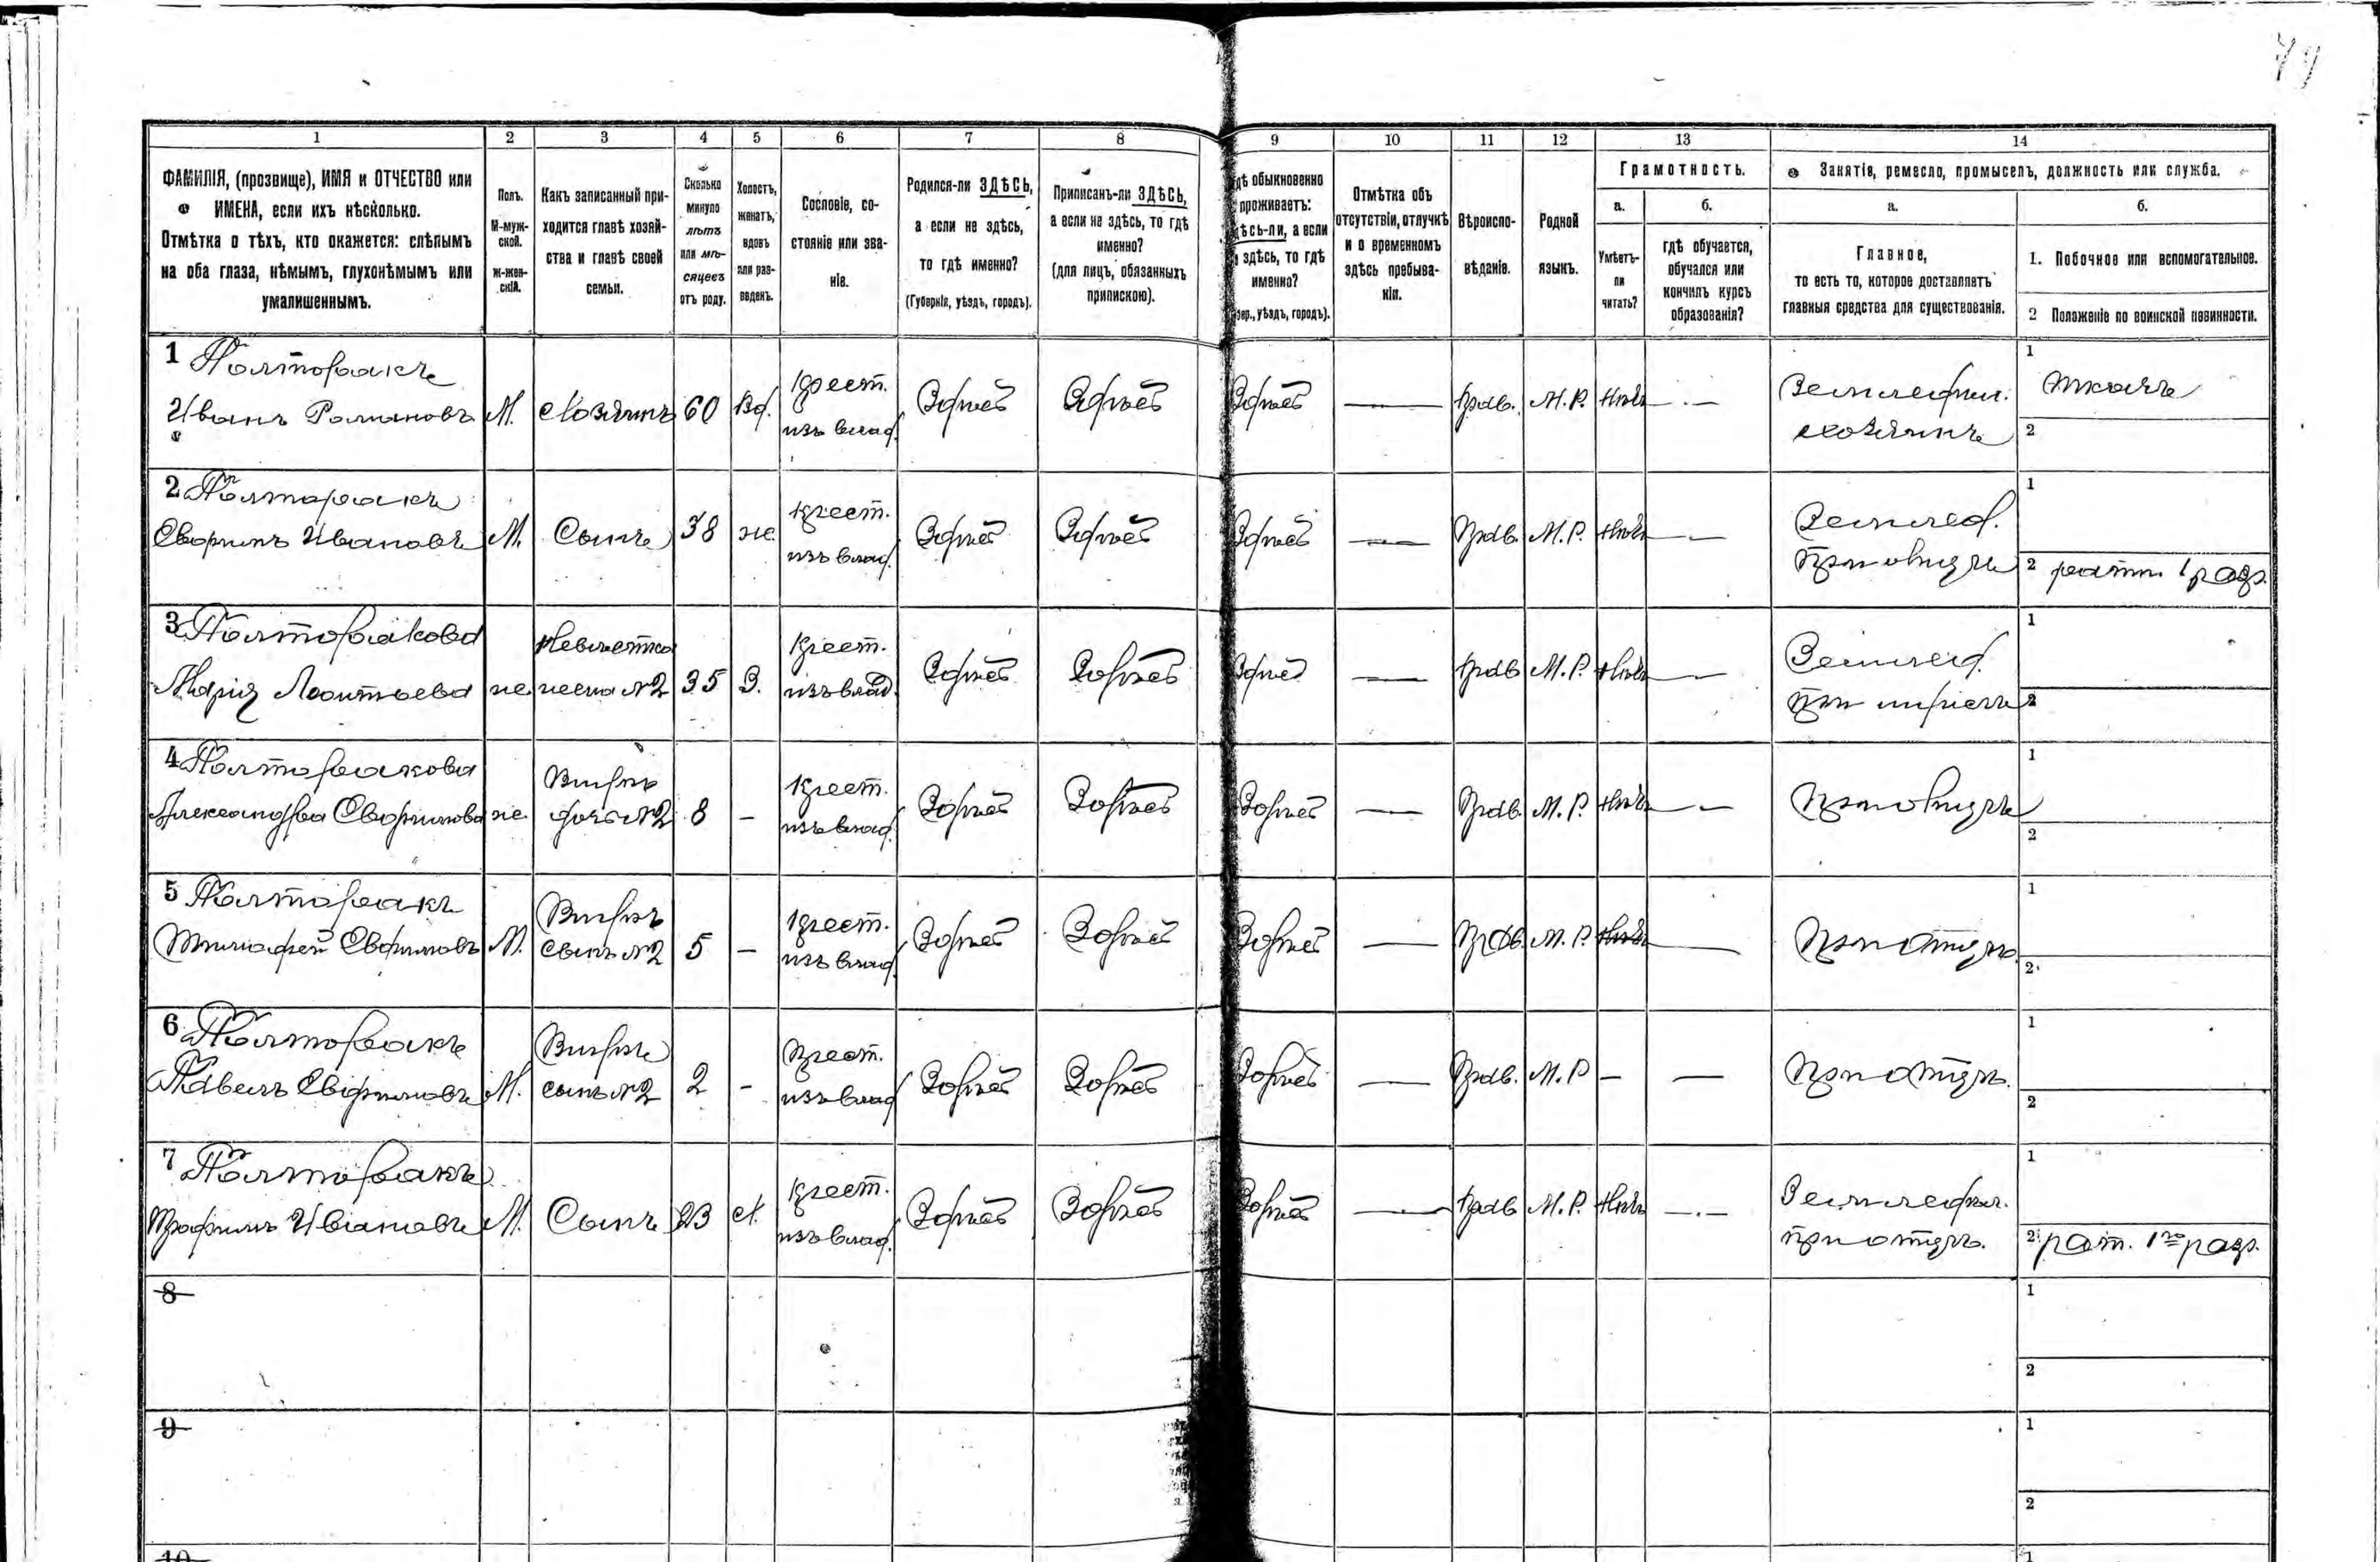 79
1 2 3 4 5 6 7 8 9 10 11 12 13 14
ФАМИЛІЯ, (прозвище), ИМЯ и ОТЧЕСТВО или
ИМЕНА, если ихъ нѣсколько.
Отмѣтка о тѣхъ, кто окажется: слѣпымъ
на оба глаза, нѣмымъ, глухонѣмымъ или
умалишеннымъ.
Полъ.
М-муж-
ской.
ж-жен-
скій.
Какъ записанный при-
ходится главѣ хозяй-
ства и главѣ своей
семьи.
Сколько
минуло
лѣтъ
или мѣ-
сяцевъ
отъ роду.
Холостъ,
женатъ,
вдовъ
или раз-
веденъ.
Сословіе, со-
стояніе или зва-
ніе.
Родился-ли ЗДѢСЬ,
а если не здѣсь,
то гдѣ именно?
(Губернія, уѣздъ, городъ).
Приписанъ-ли ЗДѢСЬ,
а если не здѣсь, то гдѣ
именно?
(для лицъ, обязанныхъ
припискою).
дѣ обыкновенно
проживаетъ:
ѣсь-ли, а если
здѣсь, то гдѣ
именно?
уѣздъ, городъ).
Отмѣтка объ
отсутствіи, отлучкѣ
и о временномъ
здѣсь пребыва-
ніи.
Вѣроиспо-
вѣданіе.
Родной
языкъ.
Грамотность.
а.
Умѣетъ-
ли
читать?
б.
гдѣ обучается,
обучался или
кончилъ курсъ
образованія?
Занятіе, ремесло, промыселъ, должность или служба.
а.
Главное,
то есть то, которое доставляетъ
главныя средства для существованія.
б.
1. Побочное или вспомогательное.
2 Положеніе по воинской повинности.
1 Полторакъ
Иванъ Романовъ М. Хозяинъ 60 Вд. крест. изъ влад. Здѣсь Здѣсь Здѣсь — Прав. М. Р. Нѣтъ — Земледѣл. хозяинъ 1 ткачъ
2
2 Полторакъ
Евфимъ Ивановъ М. Сынъ 38 же крест. изъ влад. Здѣсь Здѣсь Здѣсь — Прав. М. Р. Нѣтъ — Землед. 1
2 ратн. 1 разр.
3 Полторакова
Марія Леонтьева же Невѣстка жена №2 35 З. крест. изъ влад. Здѣсь Здѣсь Здѣсь — Прав. М. Р. Нѣтъ — Землед. 1
2
4 Полторакова
Александра Евфимова же. Внука дочь №2 8 – крест. изъ влад. Здѣсь Здѣсь Здѣсь — Прав. М. Р. Нѣтъ — 1
2
5 Полторакъ
Тимофей Евфимовъ М. Внукъ сынъ №2 5 – крест. изъ влад. Здѣсь Здѣсь Здѣсь — Прав. М. Р. Нѣтъ — при отцѣ. 1
2
6 Полторакъ
Павелъ Евфимовъ М. Внукъ сынъ №2 2 – крест. изъ влад. Здѣсь Здѣсь Здѣсь — Прав. М. Р – — при отцѣ. 1
2
7 Полторакъ
Трофимъ Ивановъ М. Сынъ 23 Х. крест. изъ влад. Здѣсь Здѣсь Здѣсь — Прав. М. Р. Нѣтъ — Земледѣл. при отцѣ. 1
2 рат. 1го разр.
8 1
2
9 1
2
10 1